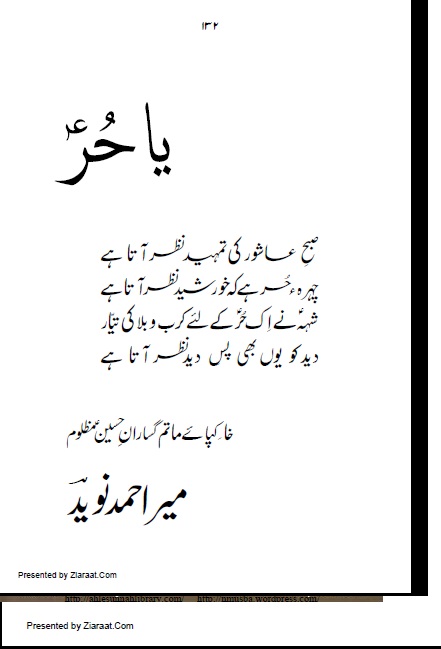 ۱۳۲
یا حُرؑ
صبحِ عاشور کی تمہید نظر آتا ہے
چہرہء حُر ہے کہ خورشید نظر آتا ہے
شہہؑ نے اِک حُرؑ کے لئے کرب و بلا کی تیّار
دید کو یوں بھی پس دید نظر آتا ہے
خاکپائے ماتم گسارانِ حسینؑ مظلوم
میر احمد نوید
Presented by Ziaraat.Com
http://ahlesunnahlibrary.com/ http://nmusba.wordpress.com/
Presented by Ziaraat.Com